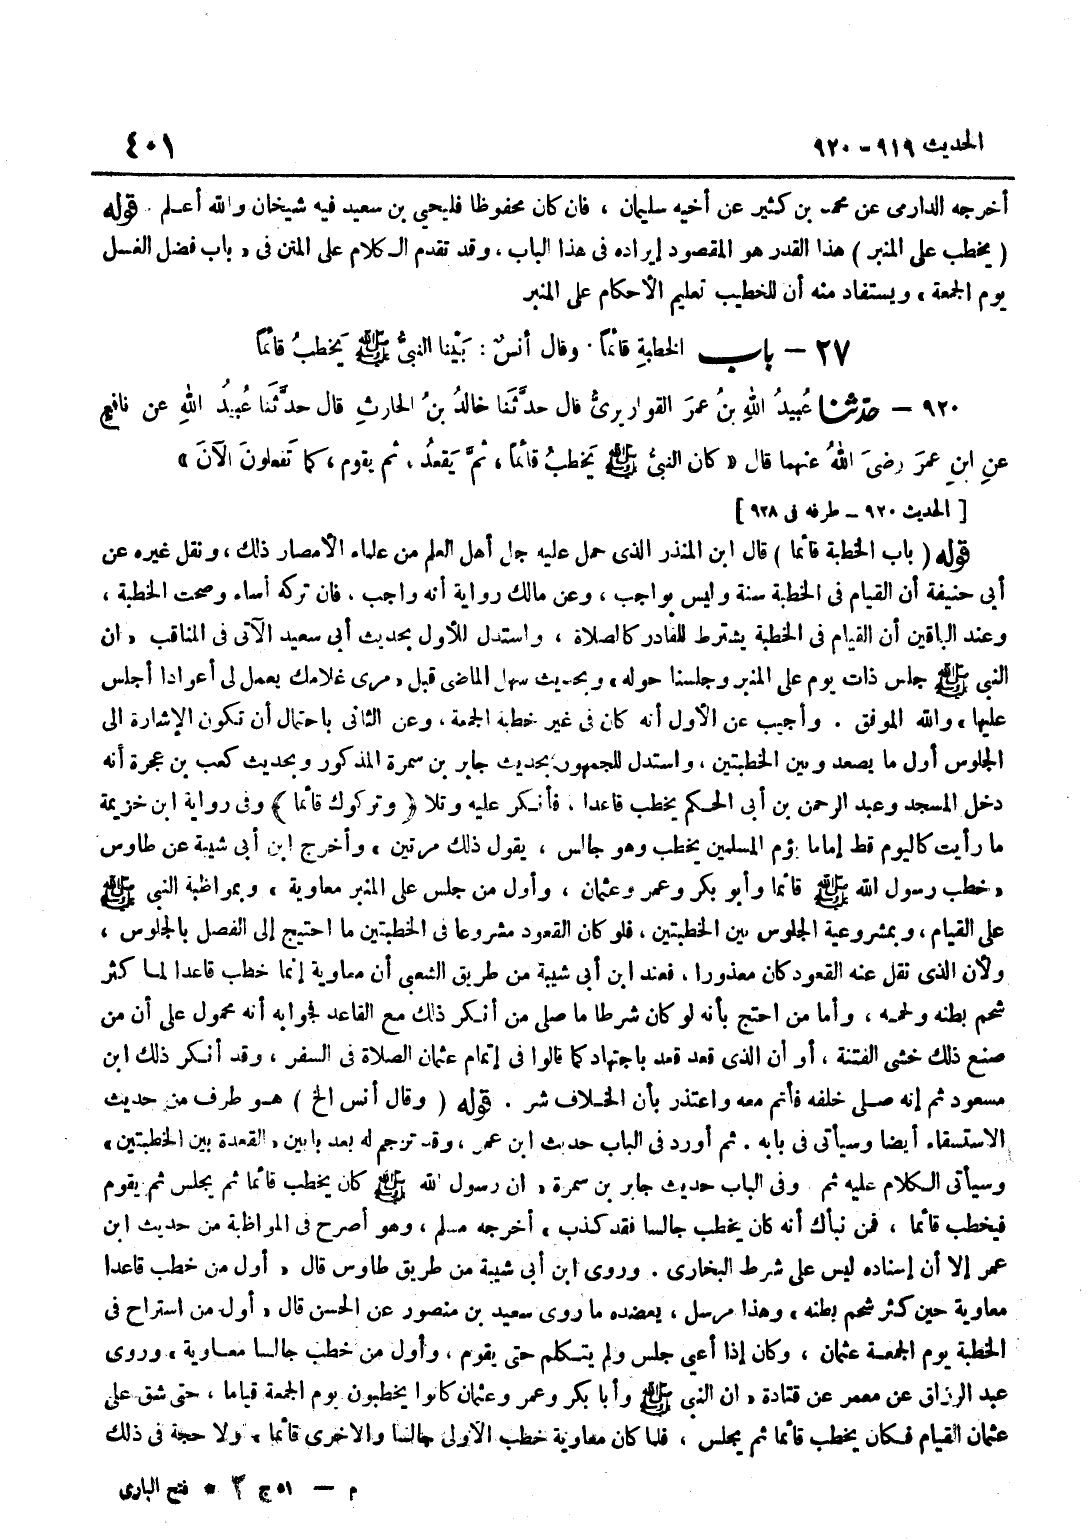 الحديث ٩١٩ - ٩٢٠
٤٠١
أخرجه الدارمى عن محمد بن كثير عن أخيه سليمان ، فان كان محفوظا فليحيى بن سعيد فيه شيخان والله أعلم . قوله
( يخطب على المنبر ) هذا القدر هو المقصود إيراده فى هذا الباب ، وقد تقدم الكلام على المتن فى « باب فضل الغسل
يوم الجمعة » ويستفاد منه أن للخطيب تعليم الأحكام على المنبر
٢٧ - باب الخطبةِ قائماً . وقال أنسٌ : بَيْنا النبىُّ ﷺ يَخطبُ قائماً
٩٢٠ - حدّثنا عُبيدُ اللهِ بنُ عمرَ القواريرىُّ قال حدَّثَنا خالدُ بنُ الحارثِ قال حدَّثَنا عُبيدُ اللهِ عن نافعٍ
عنِ ابنِ عمرَ رضىَ اللهُ عنهما قال « كان النبىُّ ﷺ يَخطبُ قائماً ، ثمَّ يَقعدُ ، ثم يقوم ، كما تَفعلونَ الآنَ »
[ الحديث ٩٢٠ ـ طرفه فى ٩٢٨ ]
قوله ( باب الخطبة قائما ) قال ابن المنذر الذى حمل عليه جل أهل العلم من علماء الأمصار ذلك ، ونقل غيره عن
أبى حنيفة أن القيام فى الخطبة سنة وليس بواجب ، وعن مالك رواية أنه واجب ، فان تركه أساء وصحت الخطبة ،
وعند الباقين أن القيام فى الخطبة يشترط للقادر كالصلاة ، واستدل للأول بحديث أبى سعيد الآتى فى المناقب « ان
النبى ﷺ جلس ذات يوم على المنبر وجلسنا حوله » وبحديث سهل الماضى قبل « مرى غلامك يعمل لى أعوادا أجلس
عليها » والله الموفق . وأجيب عن الأول أنه كان فى غير خطبة الجمعة ، وعن الثانى باحتمال أن تكون الإشارة الى
الجلوس أول ما يصعد وبين الخطبتين ، واستدل للجمهور بحديث جابر بن سمرة المذكور وبحديث كعب بن عجرة أنه
دخل المسجد وعبد الرحمن بن أبى الحكم يخطب قاعدا ، فأنكر عليه وتلا ﴿ وتركوك قائما ﴾ وفى رواية ابن خزيمة
ما رأيت كاليوم قط إماما يؤم المسلمين يخطب وهو جالس ، يقول ذلك مرتين » وأخرج ابن أبى شيبة عن طاوس
« خطب رسول الله ﷺ قائما وأبو بكر وعمر وعثمان ، وأول من جلس على المنبر معاوية » وبمواظبة النبى ﷺ
على القيام ، وبمشروعية الجلوس بين الخطبتين ، فلو كان القعود مشروعا فى الخطبتين ما احتيج إلى الفصل بالجلوس ،
ولأن الذى نقل عنه القعود كان معذورا ، فعند ابن أبى شيبة من طريق الشعبى أن معاوية إنما خطب قاعدا لما كثر
شحم بطنه ولحمه ، وأما من احتج بأنه لو كان شرطا ما صلى من أنكر ذلك مع القاعد فجوابه أنه محمول على أن من
صنع ذلك خشى الفتنة ، أو أن الذى قعد قعد باجتهاد كما قالوا فى إتمام عثمان الصلاة فى السفر ، وقد أنكر ذلك ابن
مسعود ثم إنه صلى خلفه فأتم معه واعتذر بأن الخلاف شر . قوله ( وقال أنس الخ ) هو طرف من حديث
الاستسقاء أيضا وسيأتى فى بابه . ثم أورد فى الباب حديث ابن عمر ، وقد ترجم له بعد بابين « القعدة بين الخطبتين »
وسيأتى الكلام عليه ثم وفى الباب حديث جابر بن سمرة « ان رسول الله ﷺ كان يخطب قائما ثم يجلس ثم يقوم
فيخطب قائما ، فمن نبأك أنه كان يخطب جالسا فقد كذب » أخرجه مسلم ، وهو أصرح فى المواظبة من حديث ابن
عمر إلا أن إسناده ليس على شرط البخارى . وروى ابن أبى شيبة من طريق طاوس قال « أول من خطب قاعدا
معاوية حين كثر شحم بطنه » وهذا مرسل ، يعضده ما روى سعيد بن منصور عن الحسن قال « أول من استراح فى
الخطبة يوم الجمعة عثمان ، وكان إذا أعيى جلس ولم يتكلم حتى يقوم ، وأول من خطب جالسا معاوية » وروى
عبد الرزاق عن معمر عن قتادة « ان النبى ﷺ وأبا بكر وعمر وعثمان كانوا يخطبون يوم الجمعة قياما ، حتى شق على
عثمان القيام فكان يخطب قائما ثم يجلس ، فلما كان معاوية خطب الأولى جالسا والاخرى قائما » ولا حجة فى ذلك
م — ٥١ ج ٢ * فتح البارى